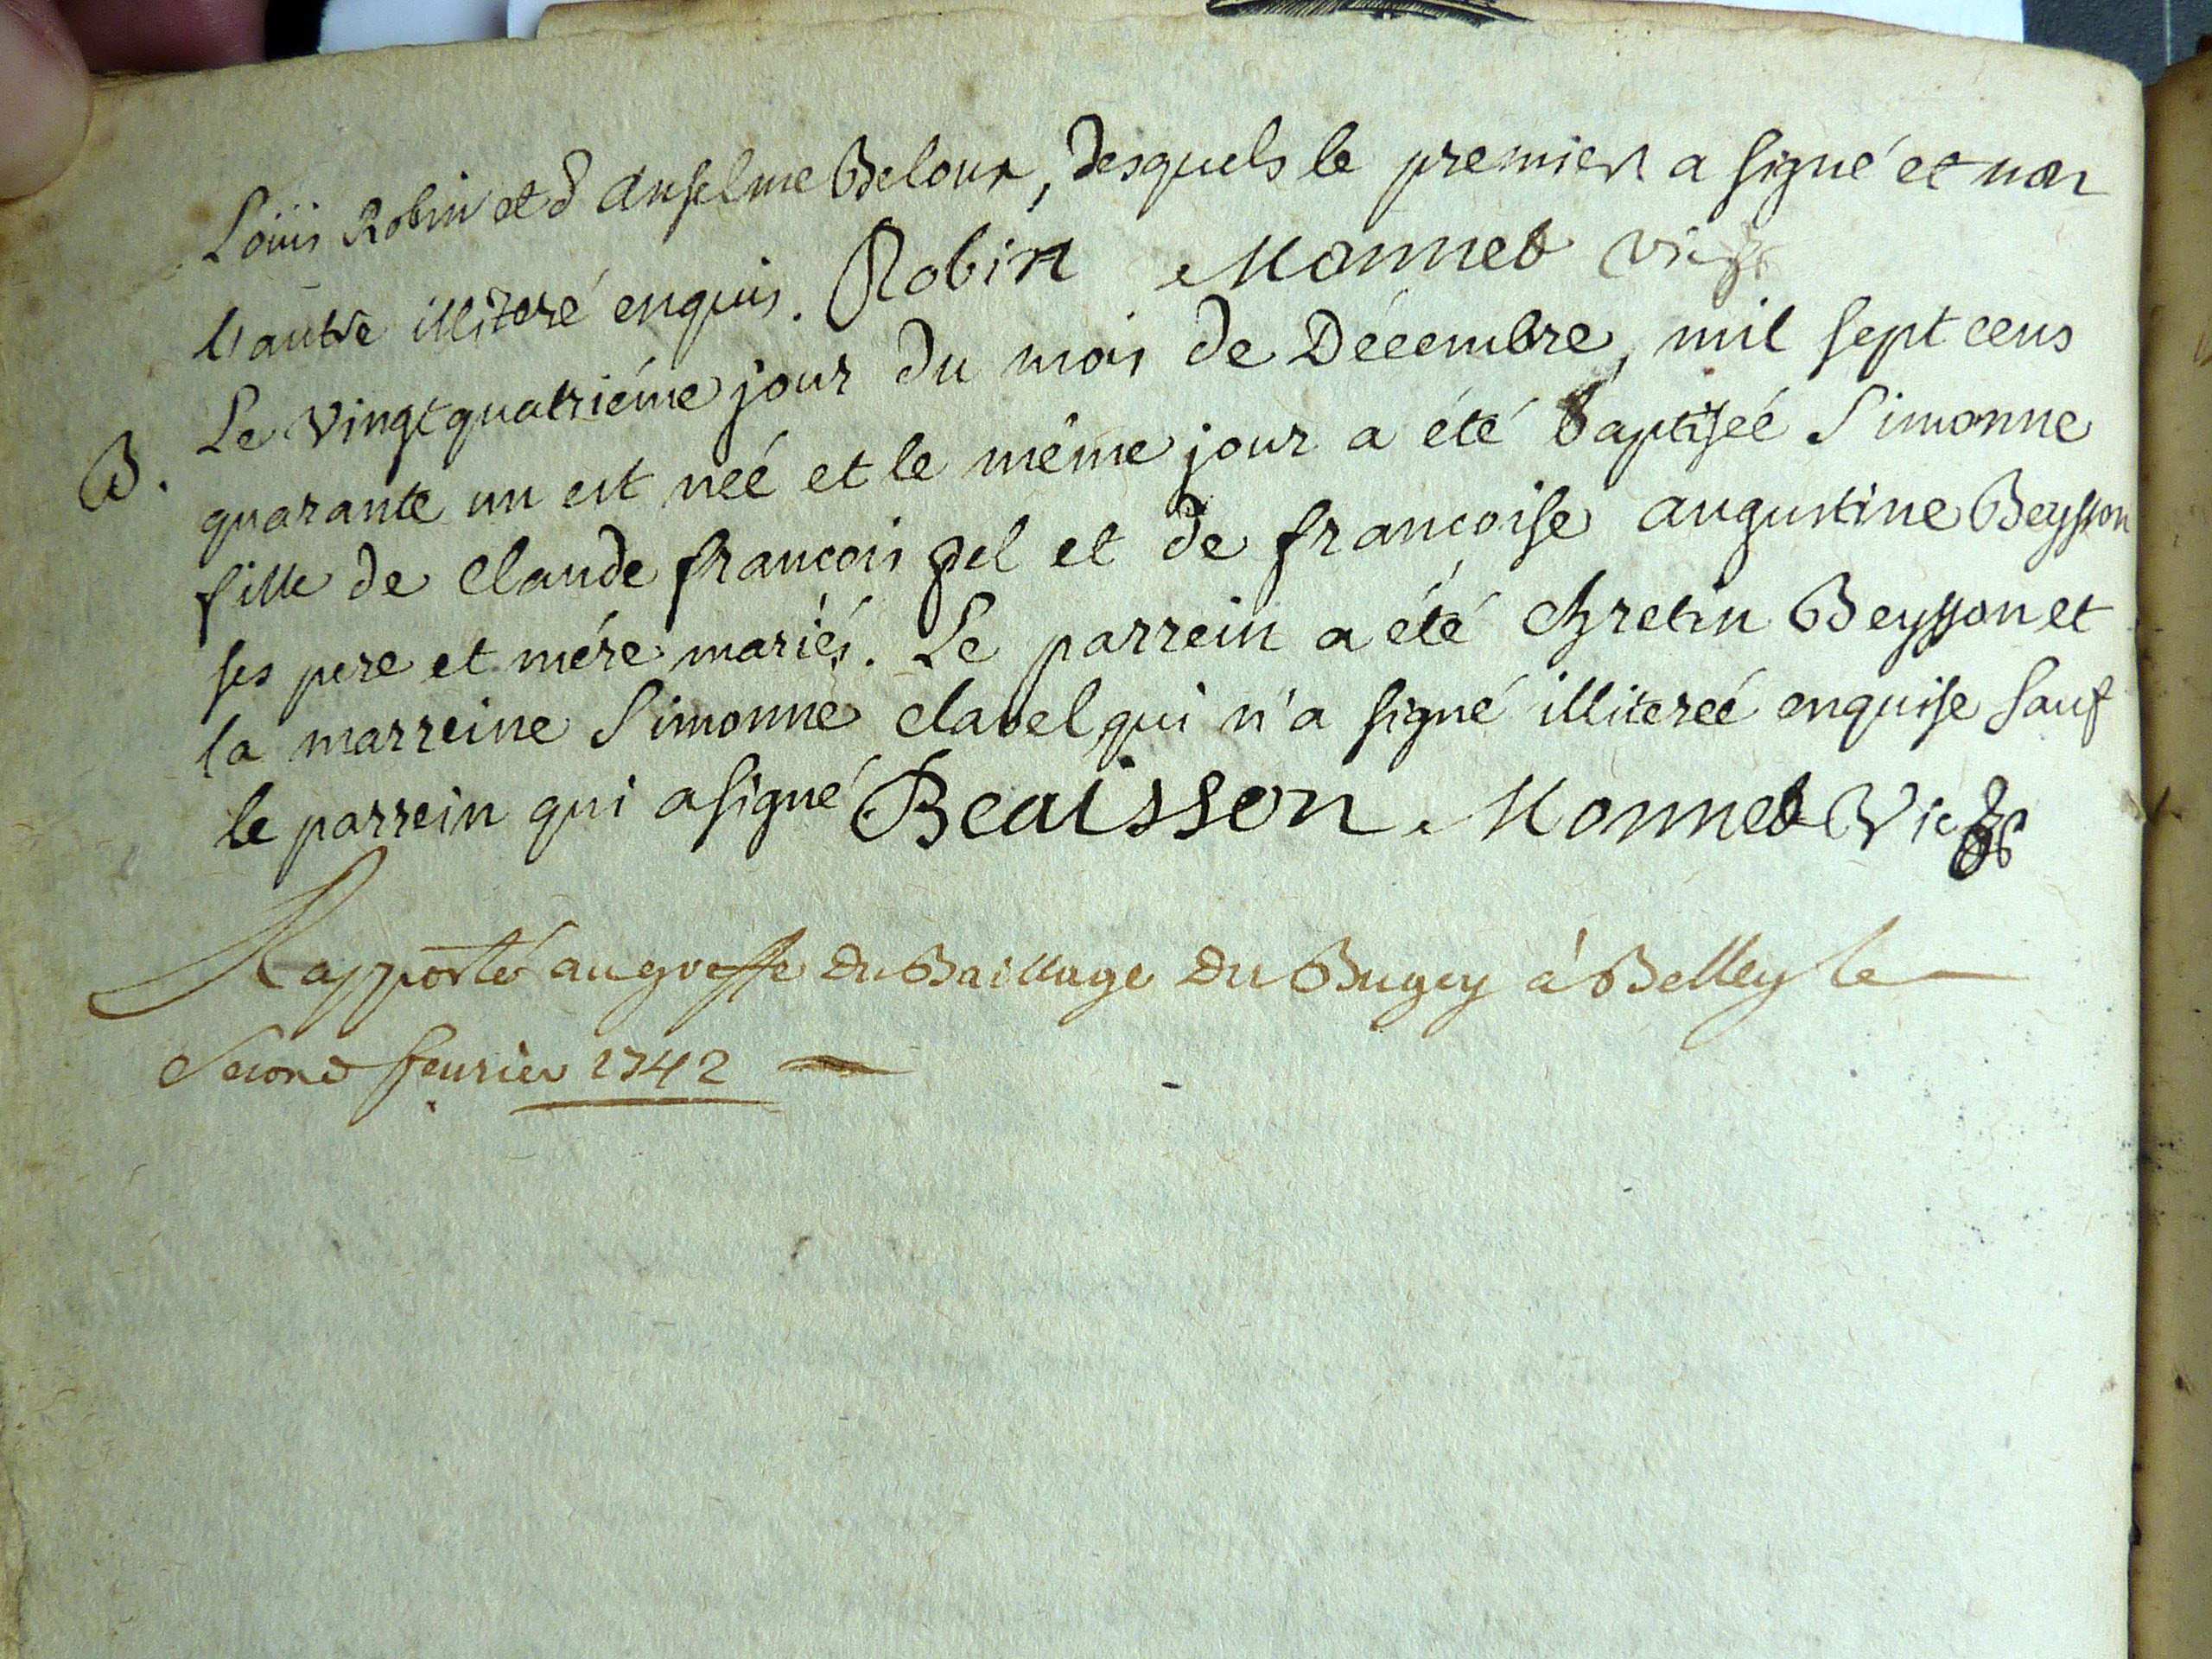 Loüis Robin et d'anselme Beloux, desquels le premier a signé et non
l'autre illiteré enquis. Robin Monnet vic^re
Le vingtquatriéme jour du mois de Décembre, mil sept cens
B. quarante un est néé et le même jour a été baptiséé Simonne
fille de Claude françois gel et de françoise augustine Beysson
ses pere et mére mariés. Le parrein a été Chretin Beysson et
la marreine Simonne clavel qui n'a signé illiteréé enquise sauf
le parrein qui a signé Beaisson Monnet Vic^re
Rapporté au greffe du Baillage du Bugey à Belley le
second feurier 1742